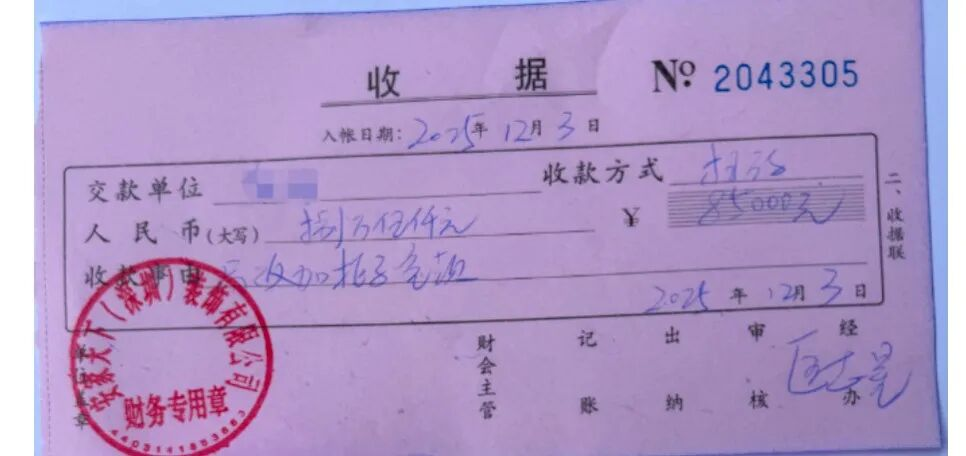 收 据 № 2043305
入帐日期：2025年12月3日
交款单位 收款方式
人民币(大写) 捌万伍仟元 ￥ 85000元
收款事由
2025年12月3日
二、收据联
财会主管 记账 出纳 审核 经办
单位盖章
安家天下（深圳）装饰有限公司
财务专用章